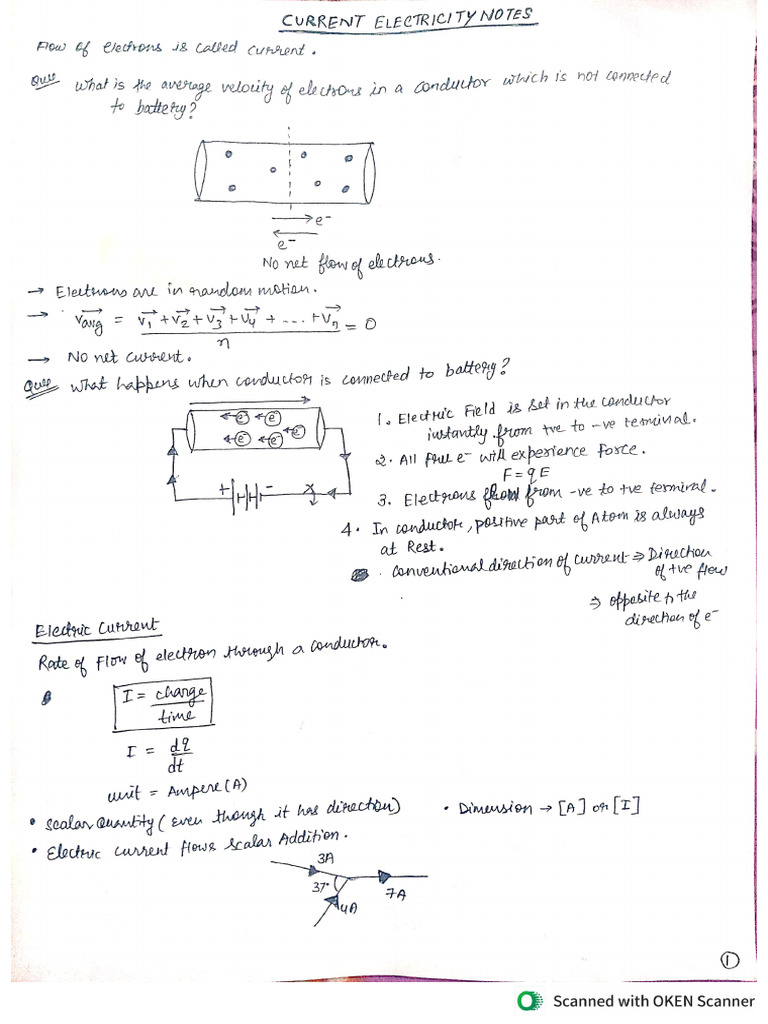 CURRENT ELECTRICITY NOTES
Flow of electrons is called current.
Ques What is the average velocity of electrons in a conductor which is not connected
to battery?
e⁻
e⁻
No net flow of electrons.
→ Electrons are in random motion.
→ v⃗avg = v⃗1 + v⃗2 + v⃗3 + v⃗4 + .... + v⃗n / n = 0
→ No net current.
Ques What happens when conductor is connected to battery?
e⁻ e⁻
e⁻ e⁻ e⁻
+ -
1. Electric Field is set in the conductor
instantly from +ve to -ve terminal.
2. All free e⁻ will experience force.
F = qE
3. Electrons from -ve to +ve terminal.
4. In conductor, positive part of Atom is always
at Rest.
. Conventional direction of current ⇒ Direction
of +ve flow
⇒ opposite to the
direction of e⁻
Electric Current
Rate of Flow of electron through a conductor.
I = charge / time
I = dq / dt
unit = Ampere (A)
• Scalar Quantity (Even though it has direction)
• Dimension → [A] or [I]
• Electric current flows scalar Addition.
3A
37°
7A
4A
1
Scanned with OKEN Scanner